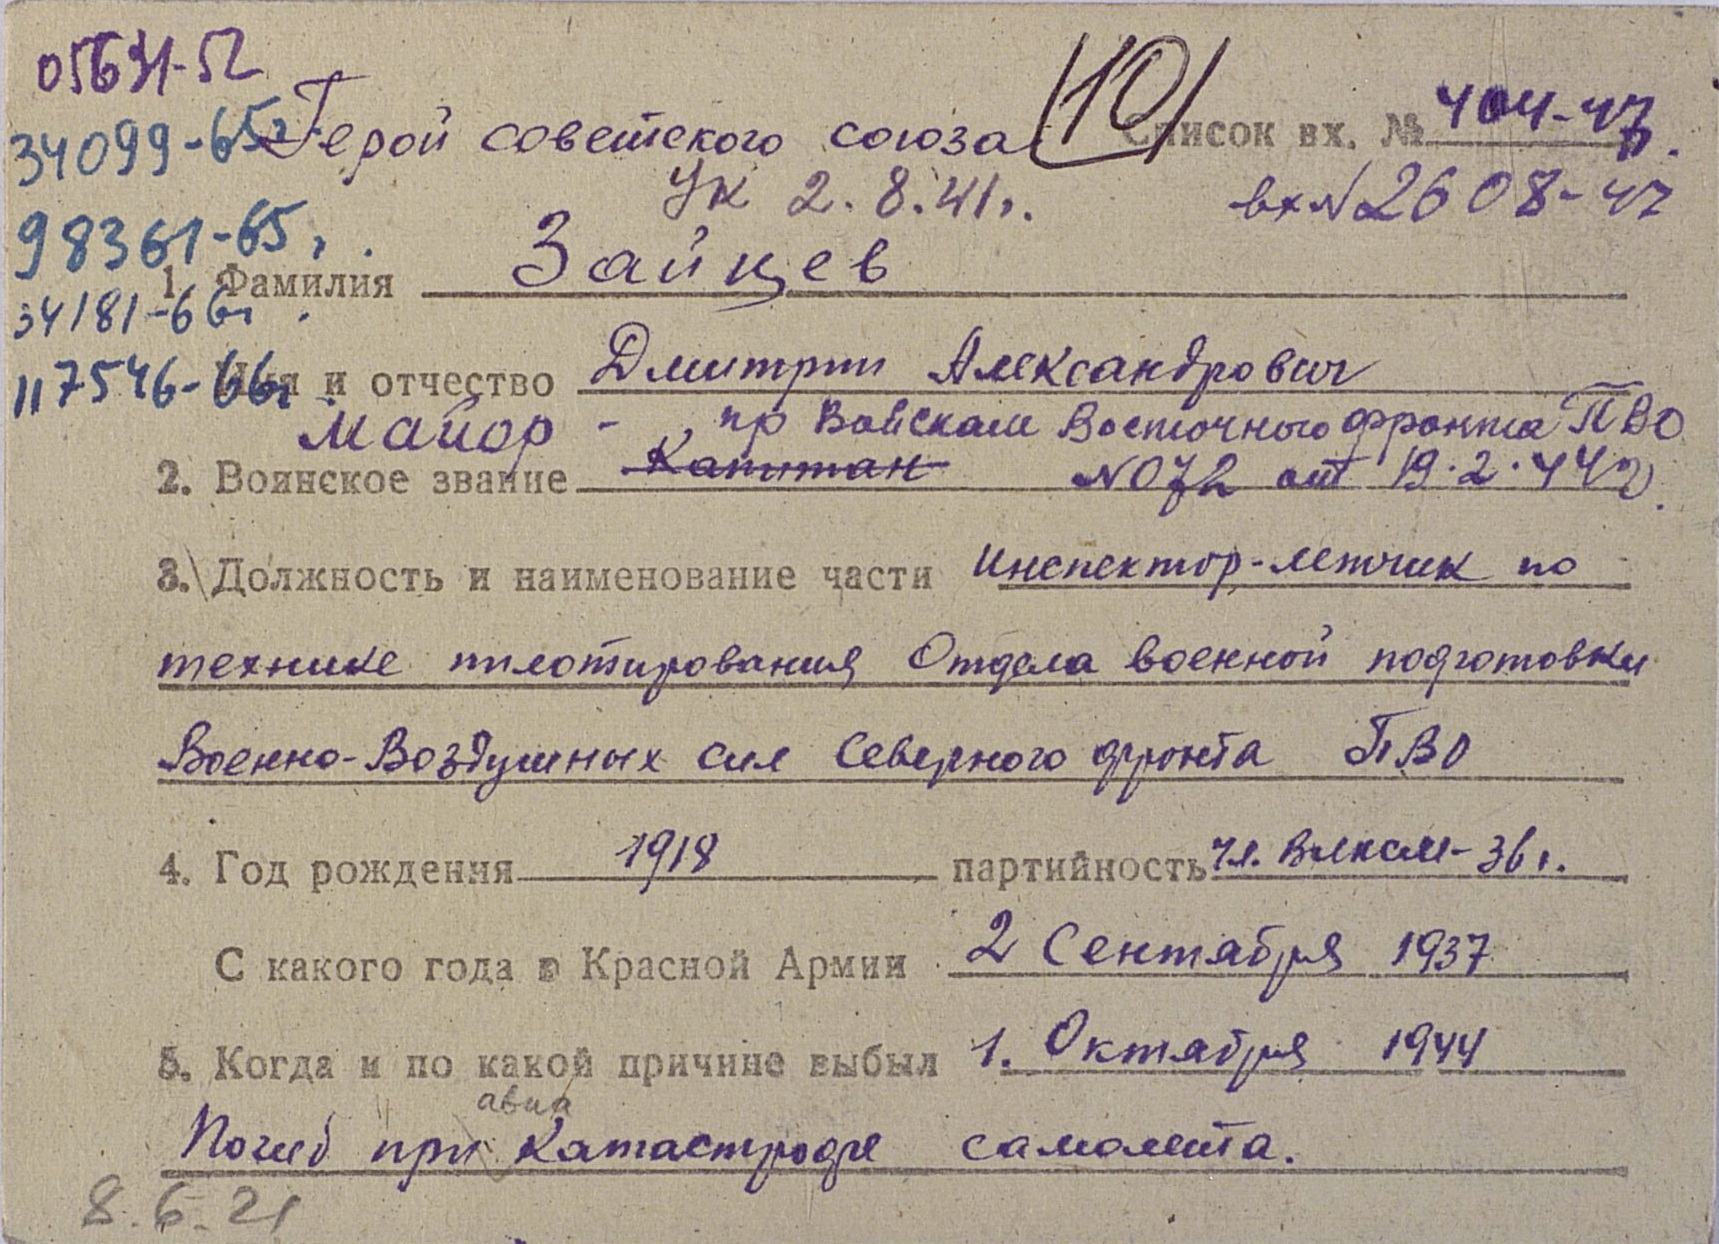 05631-52
34099-65г.
Герой советского союза
10
Список вх. № 404-47
Ук 2.8.41г.
вх № 2608-47
98361-65г.
1. Фамилия Зайцев
34181-66г.
Имя и отчество Дмитрий Александрович
117546-66г.
майор - пр Войскам Восточного фронта ПВО
2. Воинское звание Капитан №072 от 19.2.44г.
3. Должность и наименование части Инспектор-летчик по
технике пилотирования Отдела военной подготовки
Военно-Воздушных сил Северного фронта ПВО
4. Год рождения 1918 партийность чл. Влксм-36г.
С какого года в Красной Армии 2 Сентября 1937
5. Когда и по какой причине выбыл 1. Октября 1944
авиа
Погиб при Катастрофе самолета.
8.6.21